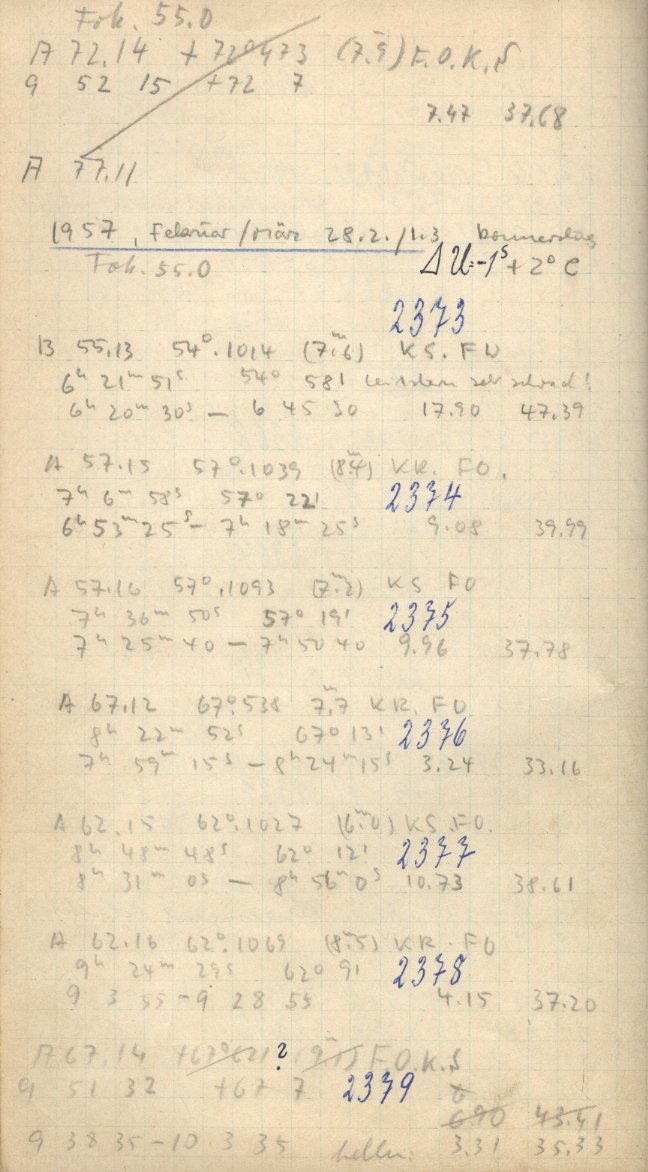 Fok. 55.0
A 72.14 +72°473 (7.9) F.O.K.S
9 52 15 +72 7
7.47 37.68
A 77.11
1957, Februar/März 28.2./1.3 Donnerstag
Fok. 55.0 ΔU=-1ˢ +2° C
2373
B 55.13 54°.1014 (7ᵐ.6) KS. FO
6ʰ 21ᵐ 51ˢ 54° 58' Leitstern sehr schwach!
6ʰ 20ᵐ 30ˢ — 6 45 30 17.90 47.39
A 57.15 57°.1039 (8ᵐ.4) KR. FO.
7ʰ 6ᵐ 58ˢ 57° 22' 2374
6ʰ 53ᵐ 25ˢ — 7ʰ 18ᵐ 25ˢ 9.08 39.99
A 57.16 57°.1093 (7ᵐ.2) KS FO
7ʰ 36ᵐ 50ˢ 57° 19' 2375
7ʰ 25ᵐ 40 — 7ʰ 50 40 9.96 37.78
A 67.12 67°.538 7ᵐ.7 KR. FO
8ʰ 22ᵐ 52ˢ 67° 13' 2376
7ʰ 59ᵐ 15ˢ — 8ʰ 24ᵐ 15ˢ 3.24 33.16
A 62.15 62°.1027 (6ᵐ.0) KS. FO.
8ʰ 48ᵐ 48ˢ 62° 12' 2377
8ʰ 31ᵐ 0ˢ — 8ʰ 56ᵐ 0ˢ 10.73 38.61
A 62.16 62°.1069 (8ᵐ.5) KR. FO
9ʰ 24ᵐ 29ˢ 62° 9' 2378
9 3 55 — 9 28 55 4.15 37.20
A 67.14 +67°621 ? (9.1) F.O.K.S
9 51 32 +67 7 2379
6.90 43.41
9 38 35 — 10 3 35 heller: 3.31 35.33